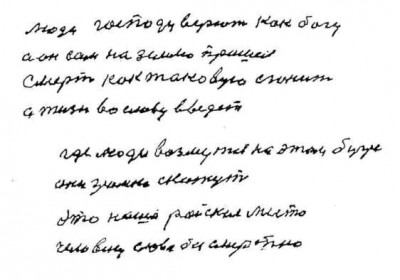 люди господу верют как богу
а он сам на землю пришел
смерт как таковую сгонит
а жизн во славу введет
где люди возмутся на этом бугре
они громко скажут
это наша райская место
человеку слава бисмертно